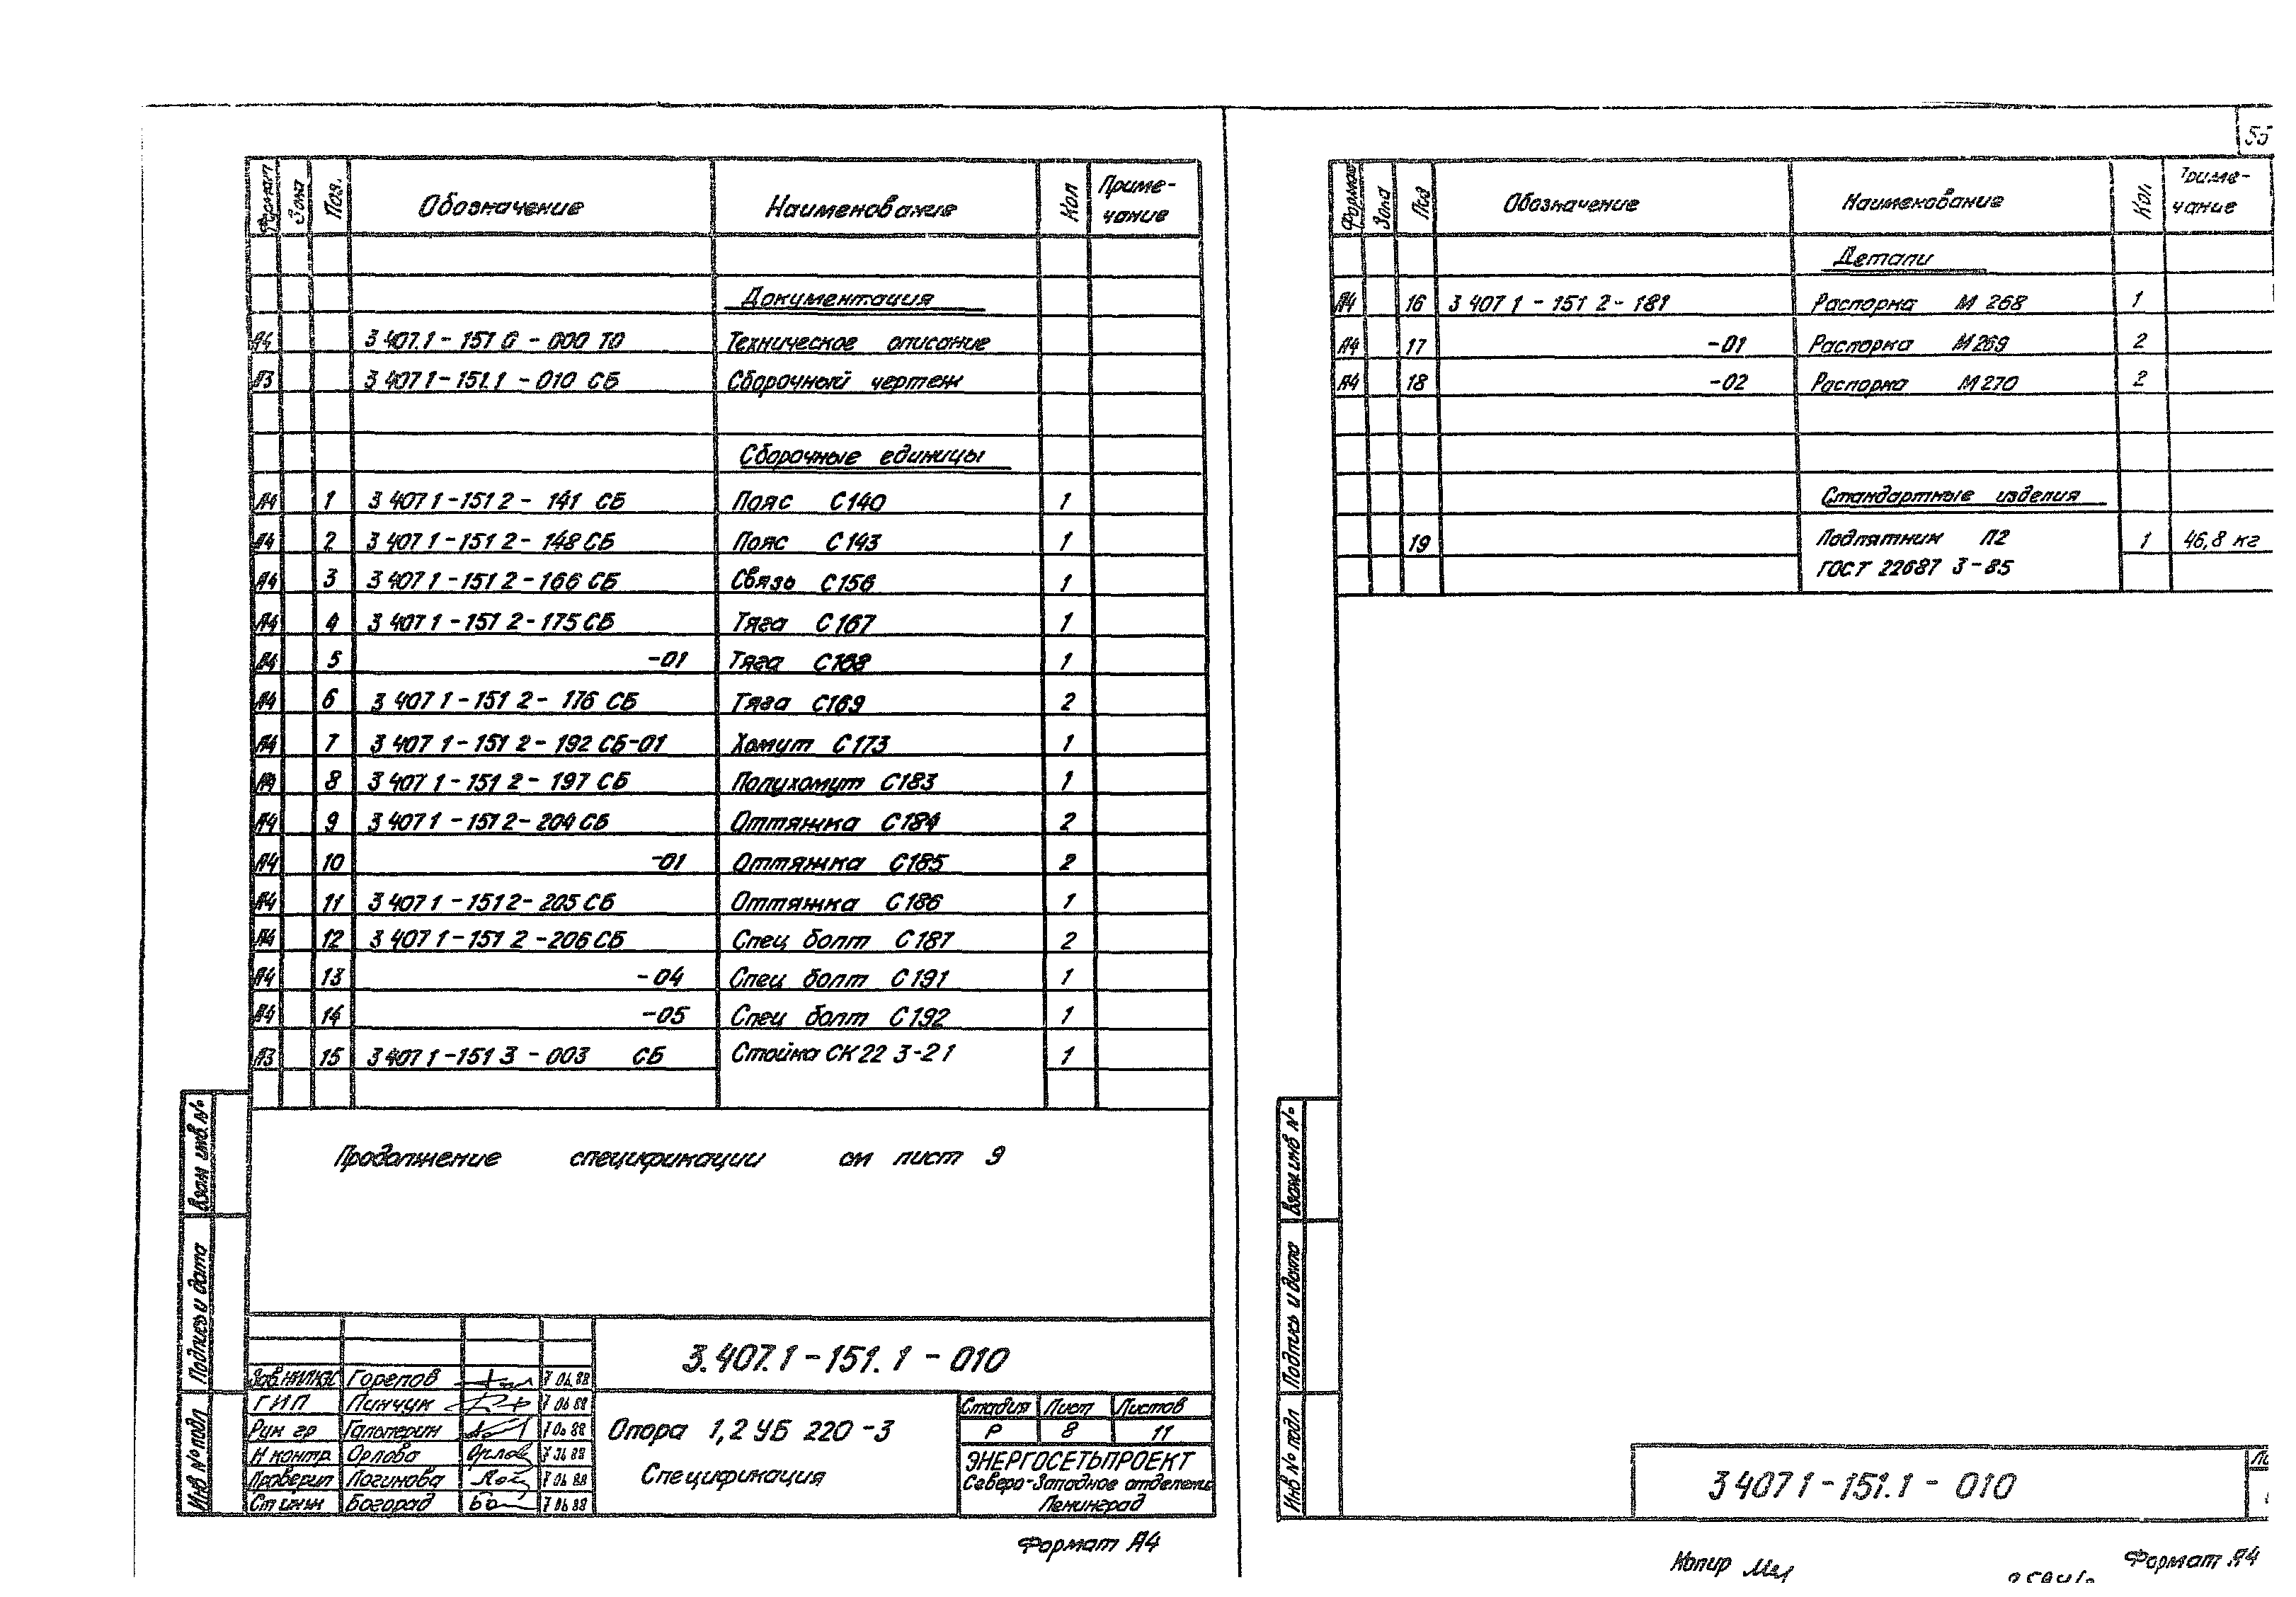 Формат Зона Поз. Обозначение Наименование Кол Приме-чание
Документация
А4 3 407.1-151 0 - 000 ТО Техническое описание
А3 3 407 1-151.1 -010 СБ Сборочный чертеж
Сборочные единицы
А4 1 3 407 1-151 2- 141 СБ Пояс С140 1
А4 2 3 407 1-151 2- 148 СБ Пояс С143 1
А4 3 3 407 1-151 2-166 СБ Связь С156 1
А4 4 3 407 1-151 2-175 СБ Тяга С167 1
А4 5 -01 Тяга С168 1
А4 6 3 407 1-151 2- 176 СБ Тяга С169 2
А4 7 3 407 1-151 2- 192 СБ-01 Хомут С173 1
А4 8 3 407 1-151 2- 197 СБ Полухомут С183 1
А4 9 3 407 1-151 2- 204 СБ Оттяжка С184 2
А4 10 -01 Оттяжка С185 2
А4 11 3 407 1-151 2- 205 СБ Оттяжка С186 1
А4 12 3 407 1-151 2 -206 СБ Спец болт С187 2
А4 13 -04 Спец болт С191 1
А4 14 -05 Спец болт С192 1
А3 15 3 407 1-151 3 -003 СБ Стойка СК 22 3-21 1
Продолжение спецификации см лист 9
Взам инв. №
Подпись и дата
Инв № подл
3.407.1-151.1-010
Зав.НИЛКЭС Горелов 7 06.88
ГИП Пинчук 7 06 88
Рук гр Гальперин 7 06 88
Н контр. Орлова Орлов 7 06 88
Проверил Логинова 7 06 88
Ст инж Богорад 7 06 88
Опора 1,2 УБ 220 -3
Спецификация
Стадия Лист Листов
Р 8 11
ЭНЕРГОСЕТЬПРОЕКТ
Северо-Западное отделение
Ленинград
Формат А4
55
Формат Зона Поз Обозначение Наименование Кол. Приме-чание
Детали
А4 16 3 407 1-151 2- 181 Распорка М 268 1
А4 17 -01 Распорка М269 2
А4 18 -02 Распорка М270 2
Стандартные изделия
19 Подпятник П2 1 46,8 кг
ГОСТ 22687 3-85
Взам инв №
Подпись и дата
Инв № подл
3 407 1-151.1-010
Копир
Формат А4